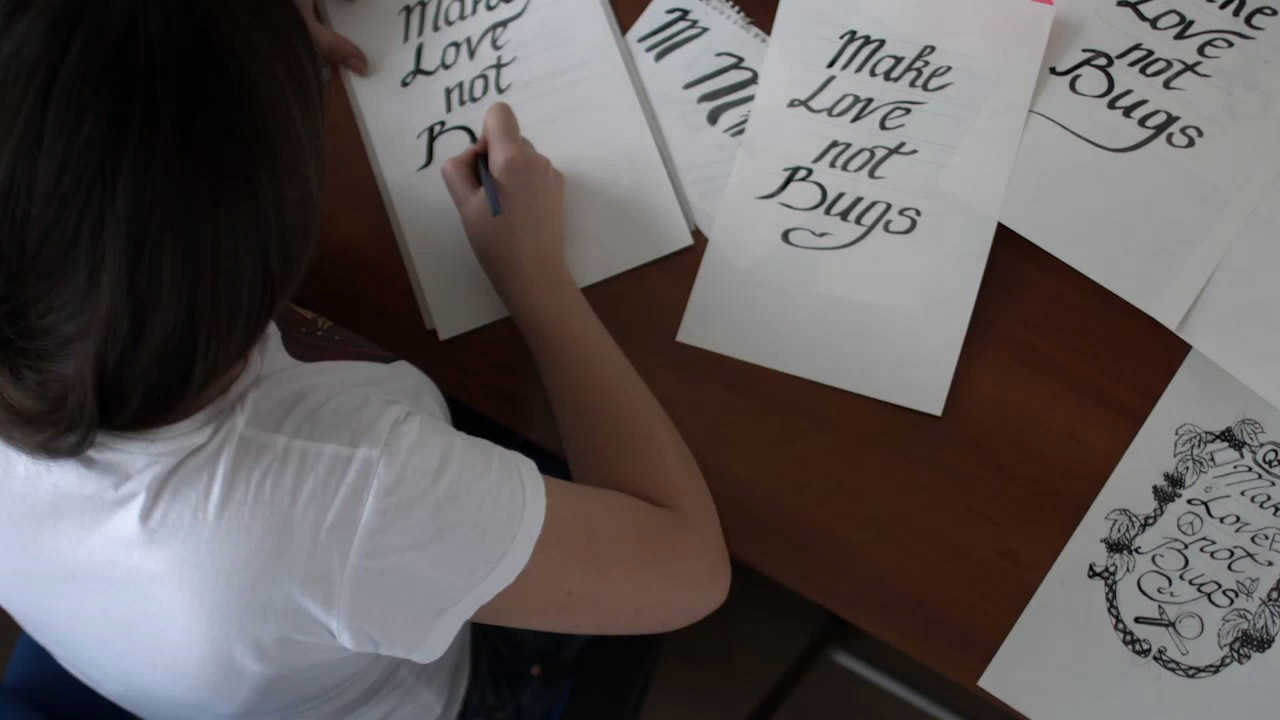 Make
Love
not
B
M M
Make
Love
not
Bugs
Love
not
Bugs
Make
Love
not
Bugs